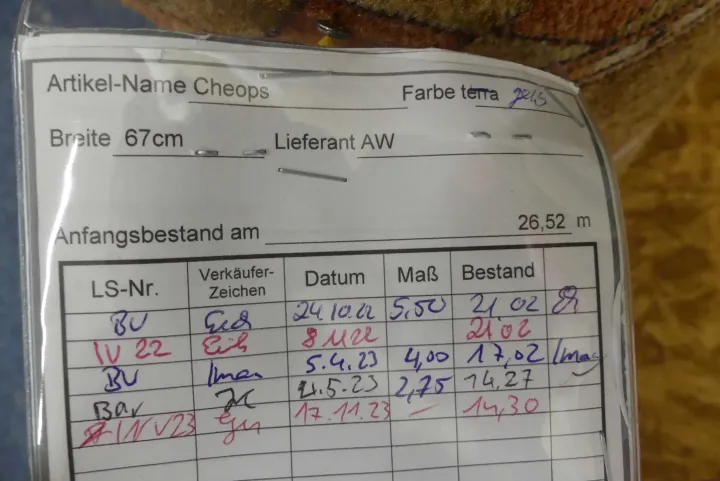 Artikel-Name Cheops Farbe terra
Breite 67cm Lieferant AW
Anfangsbestand am 26,52 m
LS-Nr. Verkäufer-Zeichen Datum Maß Bestand
BV 24.10.22 5,50 21,02
IV 22 8 11 22 21,02
BV Iman 5.4.23 4,00 17,02 Iman
Bar 4.5.23 2,75 14,27
INV23 17.11.23 – 14,30